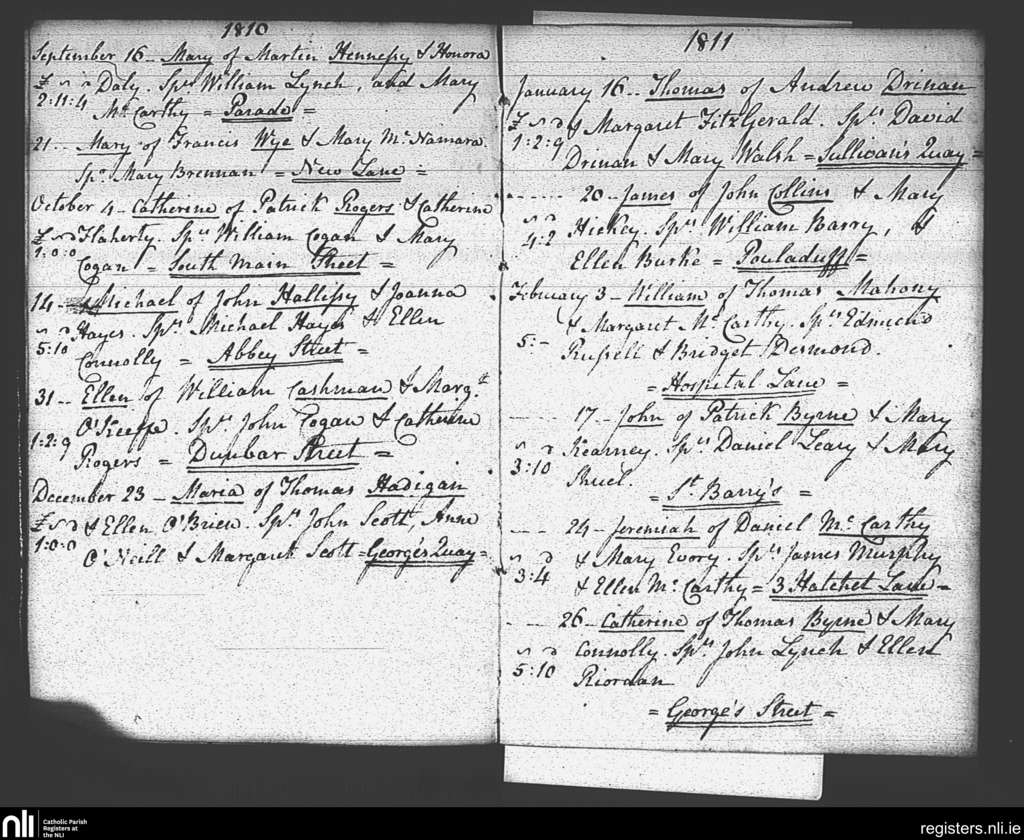 1810
September 16 - Mary of Martin Hennessy & Honora
£ s d Daly. Sprs William Lynch, and Mary
2:11:4 Mc Carthy = Parade =
21 - Mary of Francis Wye & Mary Mc Namara.
Spr Mary Brennan = New Lane =
October 4 - Catherine of Patrick Rogers & Catherine
£ s d Flaherty. Sprs William Cogan & Mary
1:0:0 Cogan = South Main Street =
14 - Michael of John Hallissy & Joanna
s d Hayes. Sprs Michael Hayes & Ellen
5:10 Connolly = Abbey Street =
31 - Ellen of William Cashman & Margt
O'Keeffe. Sprs John Cogan & Catherine
1:2:9 Rogers = Dunbar Street =
December 23 - Maria of Thomas Hadigan
£ s d & Ellen O'Brien. Sprs John Scott, Anne
1:0:0 O'Neill & Margaret Scott = George's Quay =
1811
January 16 - Thomas of Andrew Drinan
£ s d & Margaret FitzGerald. Sprs David
1:2:9 Drinan & Mary Walsh = Sullivan's Quay =
20 - James of John Collins & Mary
s d Hickey. Sprs William Barry, &
4:2 Ellen Burke = Pouladuff =
February 3 - William of Thomas Mahony
& Margaret Mc Carthy. Sprs Edmund
5:- Russell & Bridget Desmond.
= Hospital Lane =
17 - John of Patrick Byrne & Mary
s d Kearney. Sprs Daniel Leary & Mary
3:10 Shuel.
= St. Barry's =
24 - Jeremiah of Daniel Mc Carthy
s d & Mary Evory. Sprs James Murphy
3:4 & Ellen Mc Carthy = 3 Hatchet Lane =
26 - Catherine of Thomas Byrne & Mary
s d Connolly. Sprs John Lynch & Ellen
5:10 Riordan
= George's Street =
nli Catholic Parish
Registers at
the NLI
registers.nli.ie